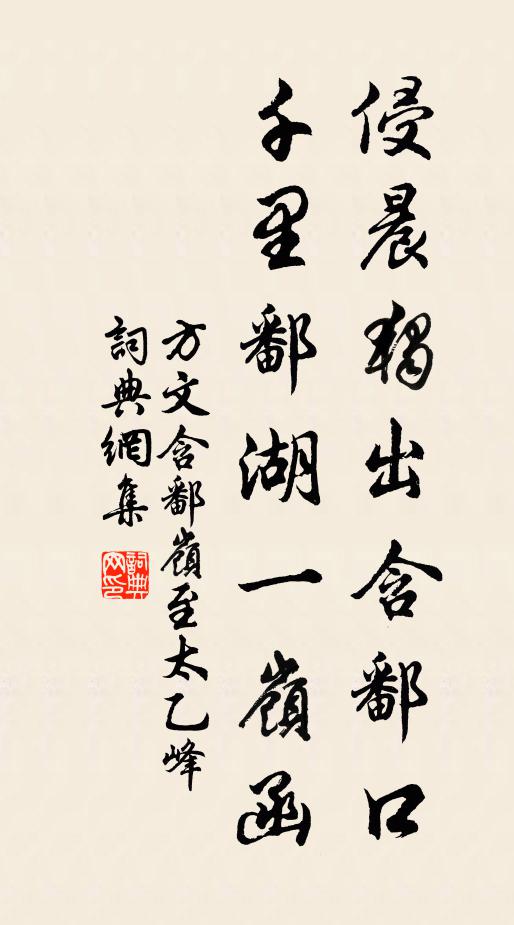 侵晨獨出含鄱口
千里鄱湖一嶺函
方文含鄱嶺至太乙峰
詞典網集
詞典网印